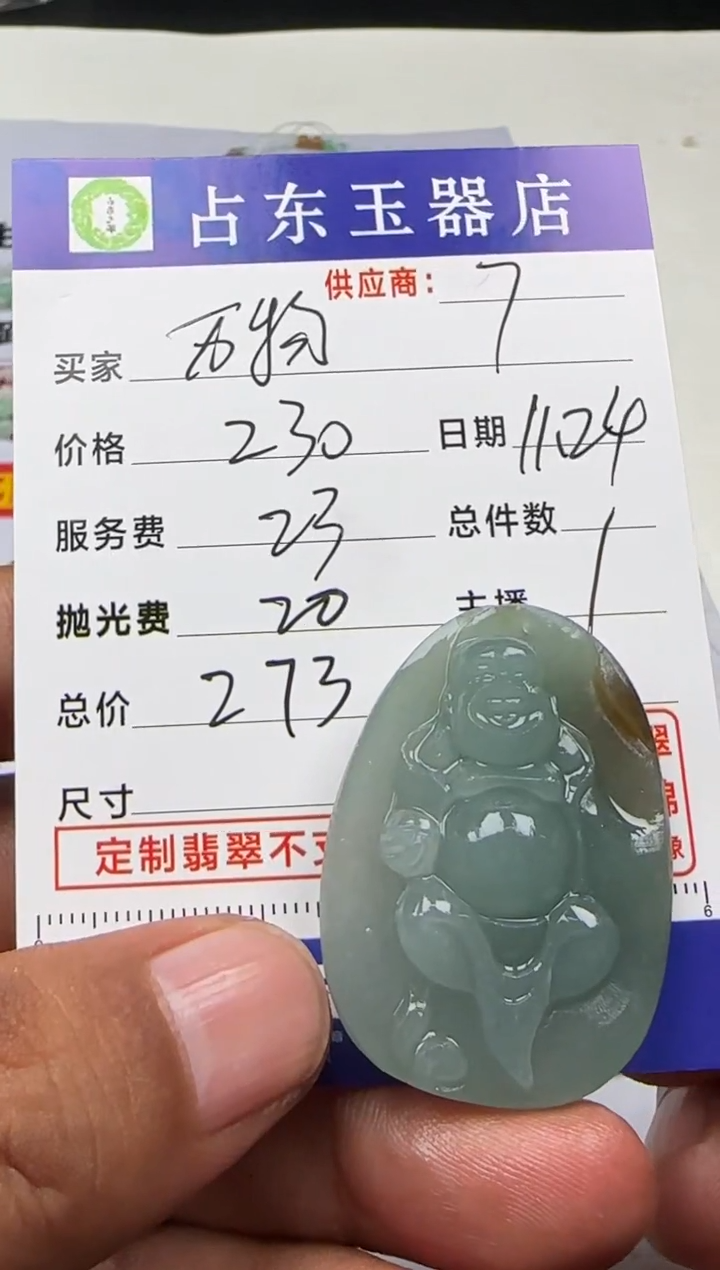 占东玉器店
供应商: 7
买家 万物
价格 230 日期 1124
服务费 23 总件数 1
抛光费 20 主播
总价 273
尺寸
定制翡翠不支
6